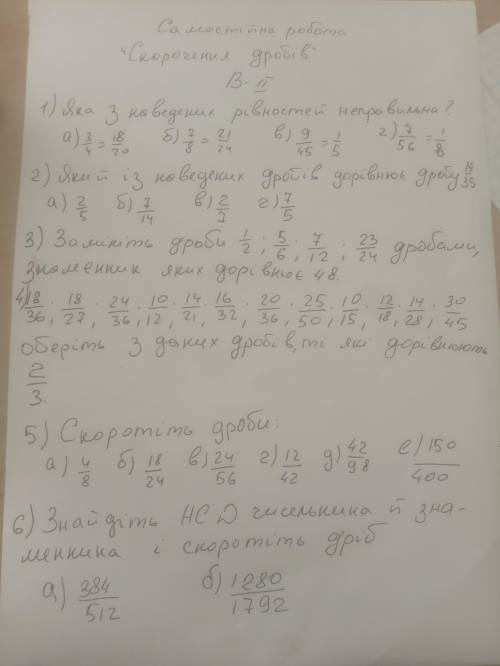 Самостійна робота
"Скорочення дробів"
В-II
1) Яка з наведених рівностей неправильна?
а) 3/4 = 18/20 б) 7/8 = 21/24 в) 9/45 = 1/5 г) 7/56 = 1/8
2) Який із наведених дробів дорівнює дробу 14/35
а) 2/5 б) 7/14 в) 2/7 г) 7/5
3) Замініть дроби 1/2 ; 5/6 ; 7/12 ; 23/24 дробами,
знаменник яких дорівнює 48.
4) 18/36 ; 18/27 ; 24/36 ; 10/12 ; 14/21 ; 16/32 ; 20/36 ; 25/50 ; 10/15 ; 12/18 ; 14/28 ; 30/45
оберіть з даних дробів, ті які дорівнюють
2/3.
5) Скоротіть дроби:
а) 4/8 б) 18/24 в) 24/56 г) 12/42 д) 42/98 е) 150/400
6) Знайдіть НСД чисельника й зна-
менника і скоротіть дріб
а) 384/512 б) 1280/1792